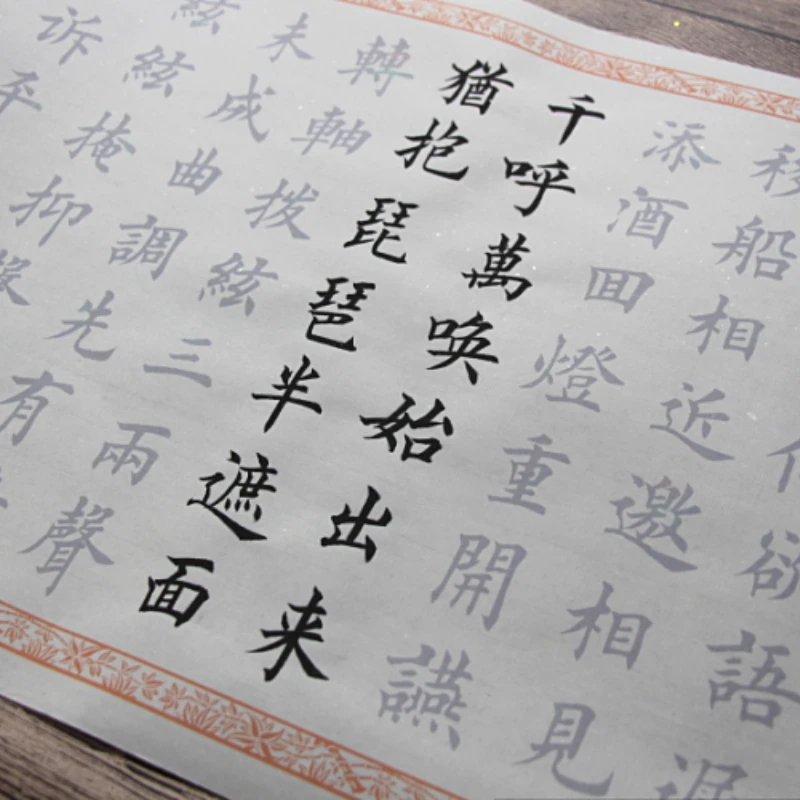 欲語遲
移船相近邀相見
添酒囬燈重開讌
千呼萬唤始出来
猶抱琵琶半遮面
轉軸拨絃三兩聲
未成曲調先有
絃絃掩抑
訴平